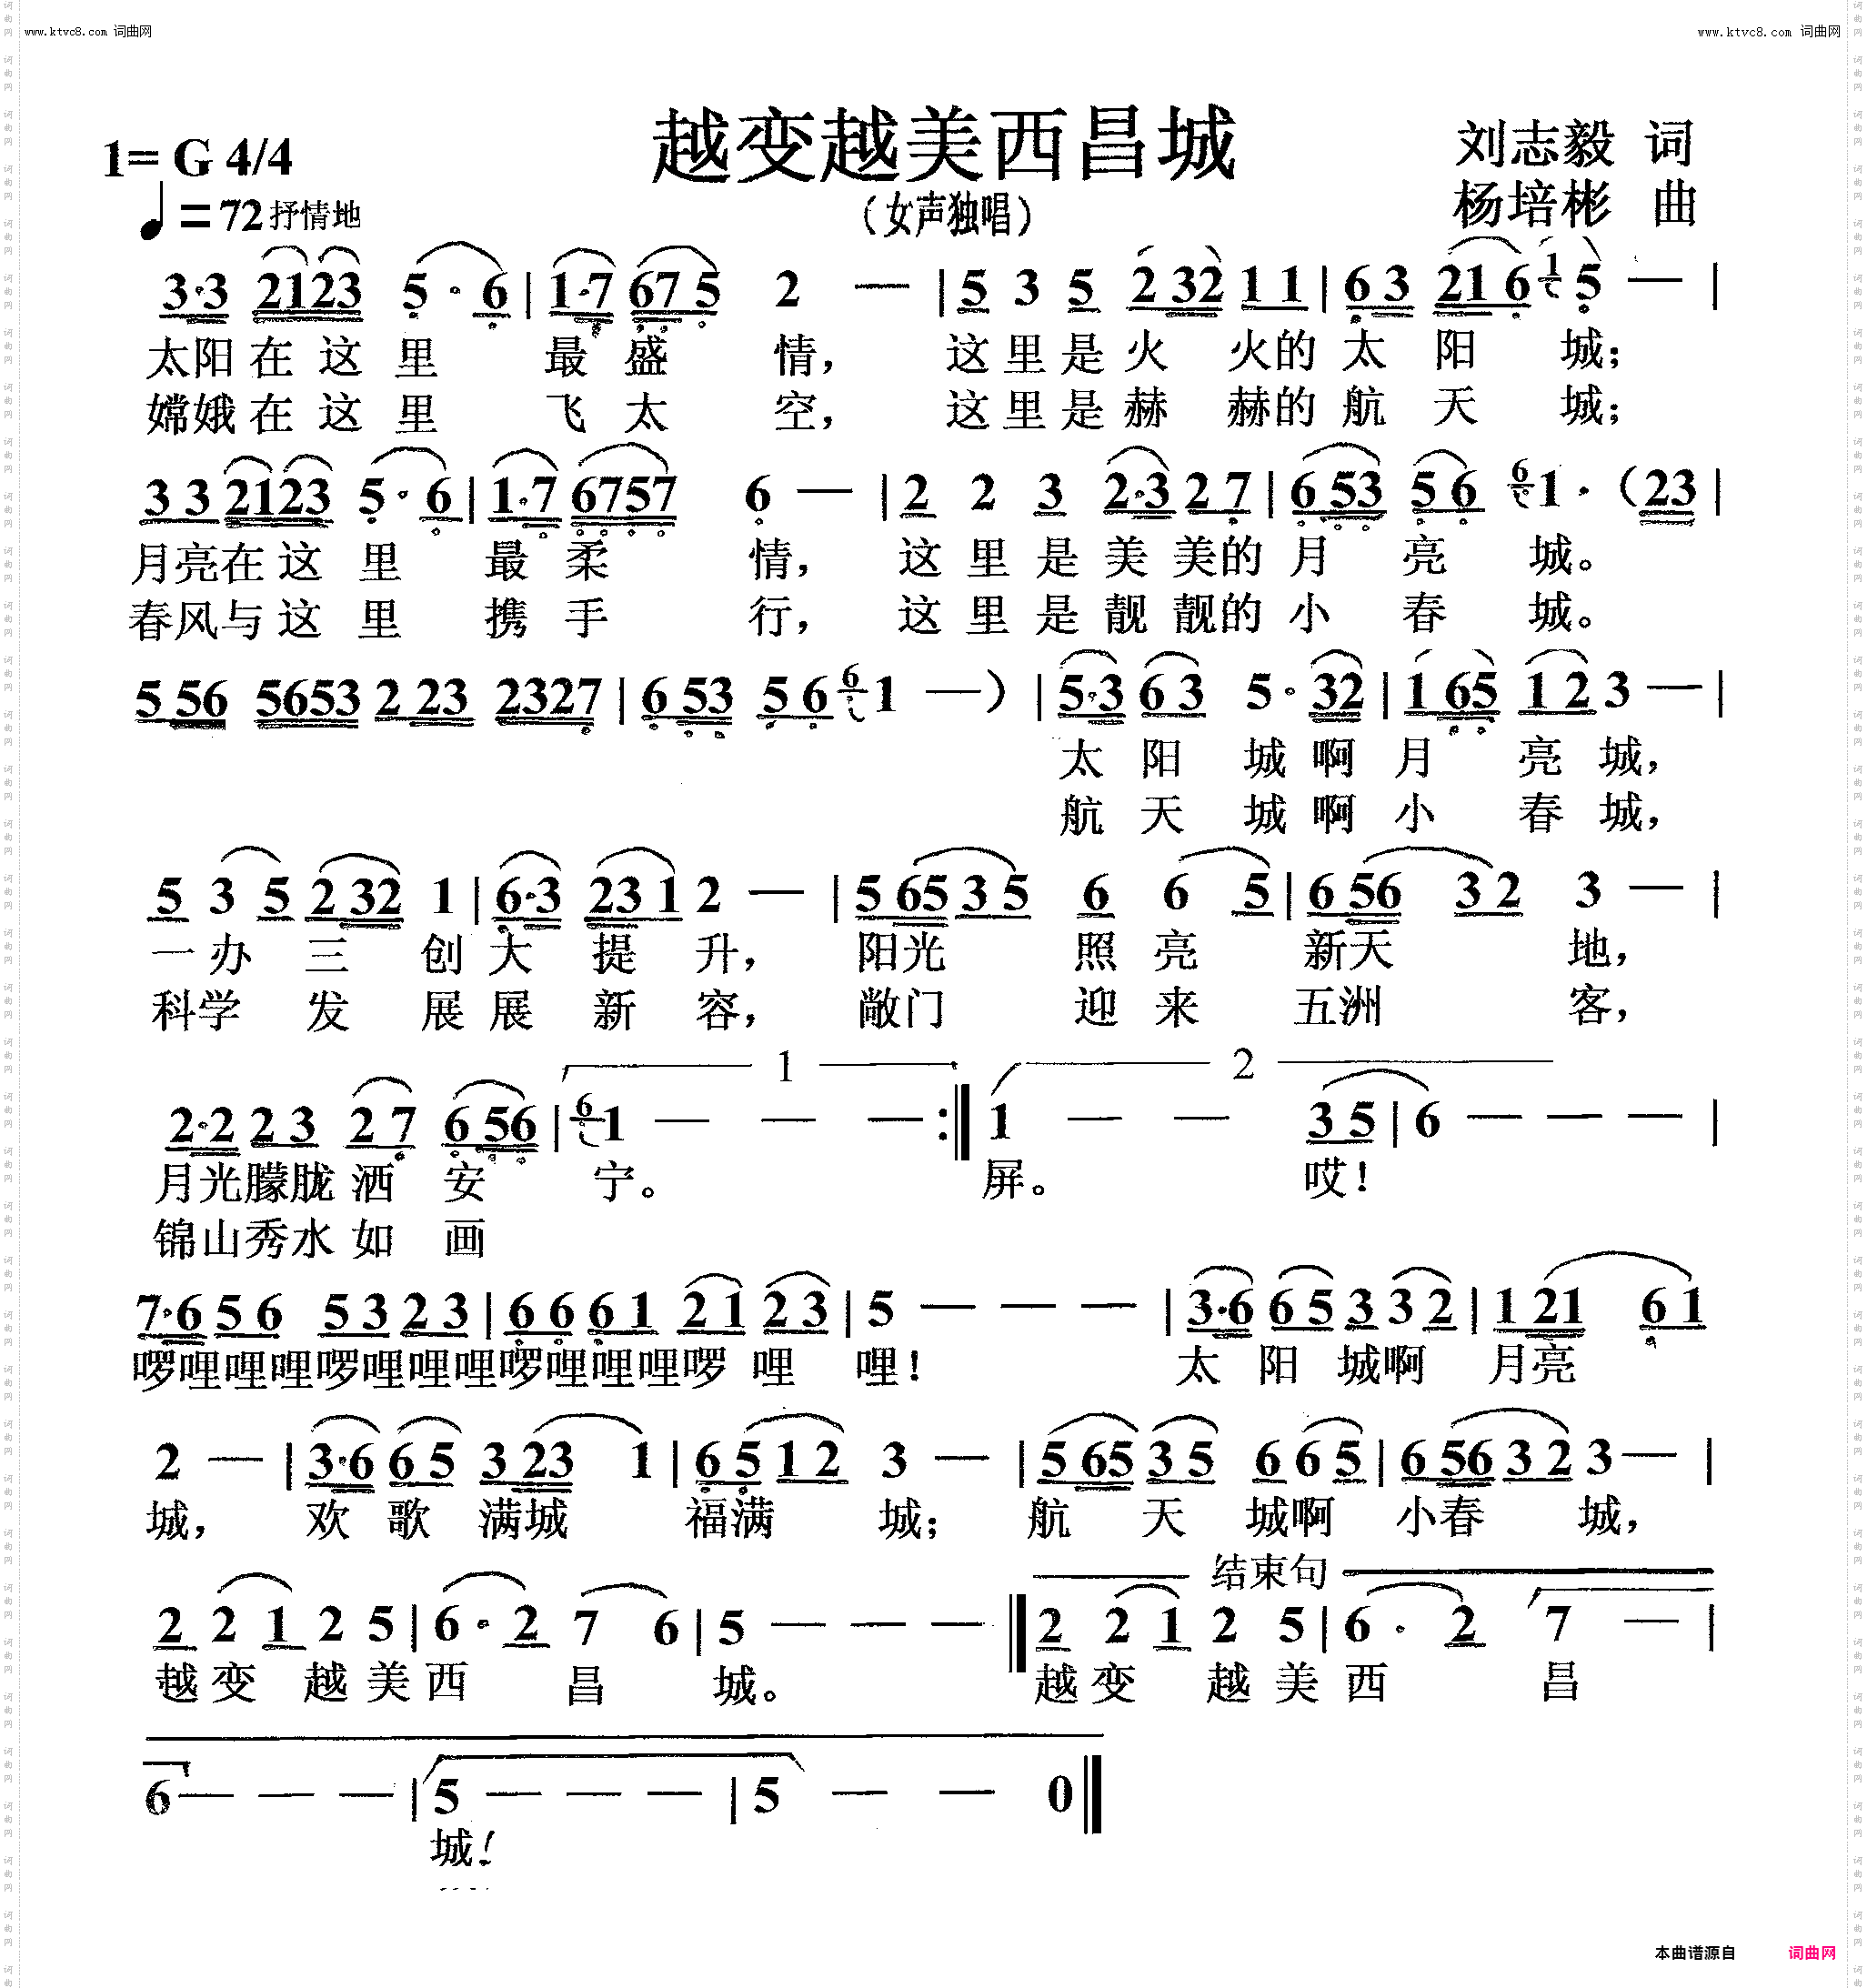 www.ktvc8.com 词曲网 www.ktvc8.com 词曲网
越变越美西昌城
1= G 4/4 刘志毅 词
♩= 72 抒情地 (女声独唱) 杨培彬 曲
3·3 2123 5·6 | 1·7 675 2 — | 5 3 5 2 32 1 1 | 6 3 21 6 1 5 — |
太阳在这里 最盛 情, 这里是火 火的太 阳 城;
嫦娥在这里 飞太 空, 这里是赫 赫的航 天 城;
3 3 2123 5·6 | 1·7 6757 6 — | 2 2 3 2·3 2 7 | 6 53 5 6 6 1·(23 |
月亮在这里 最柔 情, 这里是美美的月 亮 城。
春风与这里 携手 行, 这里是靓靓的小 春 城。
5 56 5653 2 23 2327 | 6 53 5 6 6 1 — ) | 5·3 6 3 5·32 | 1 65 1 2 3 — |
太阳 城啊月 亮城,
航天 城啊小 春城,
5 3 5 2 32 1 | 6·3 23 1 2 — | 5 65 3 5 6 6 5 | 6 56 3 2 3 — |
一办 三 创大 提 升, 阳光 照亮 新天 地,
科学 发 展展 新 容, 敞门 迎来 五洲 客,
1 2
2·2 2 3 2 7 6 56 | 6 1 — — — :‖ 1 — — 3 5 | 6 — — — |
月光朦胧洒安 宁。 屏。 哎!
锦山秀水如画
7·6 5 6 5 3 2 3 | 6 6 6 1 2 1 2 3 | 5 — — — | 3·6 6 5 3 3 2 | 1 21 6 1
啰哩哩哩啰哩哩哩啰哩哩哩啰 哩 哩! 太阳 城啊 月亮
2 — | 3·6 6 5 3 23 1 | 6 5 1 2 3 — | 5 65 3 5 6 6 5 | 6 56 3 2 3 — |
城, 欢歌 满城 福满 城; 航天 城啊 小春 城,
结束句
2 2 1 2 5 | 6·2 7 6 | 5 — — — ‖ 2 2 1 2 5 | 6·2 7 — |
越变 越美西 昌 城。 越变 越美西 昌
6 — — — | 5 — — — | 5 — — 0 ‖
城!
本曲谱源自 词曲网